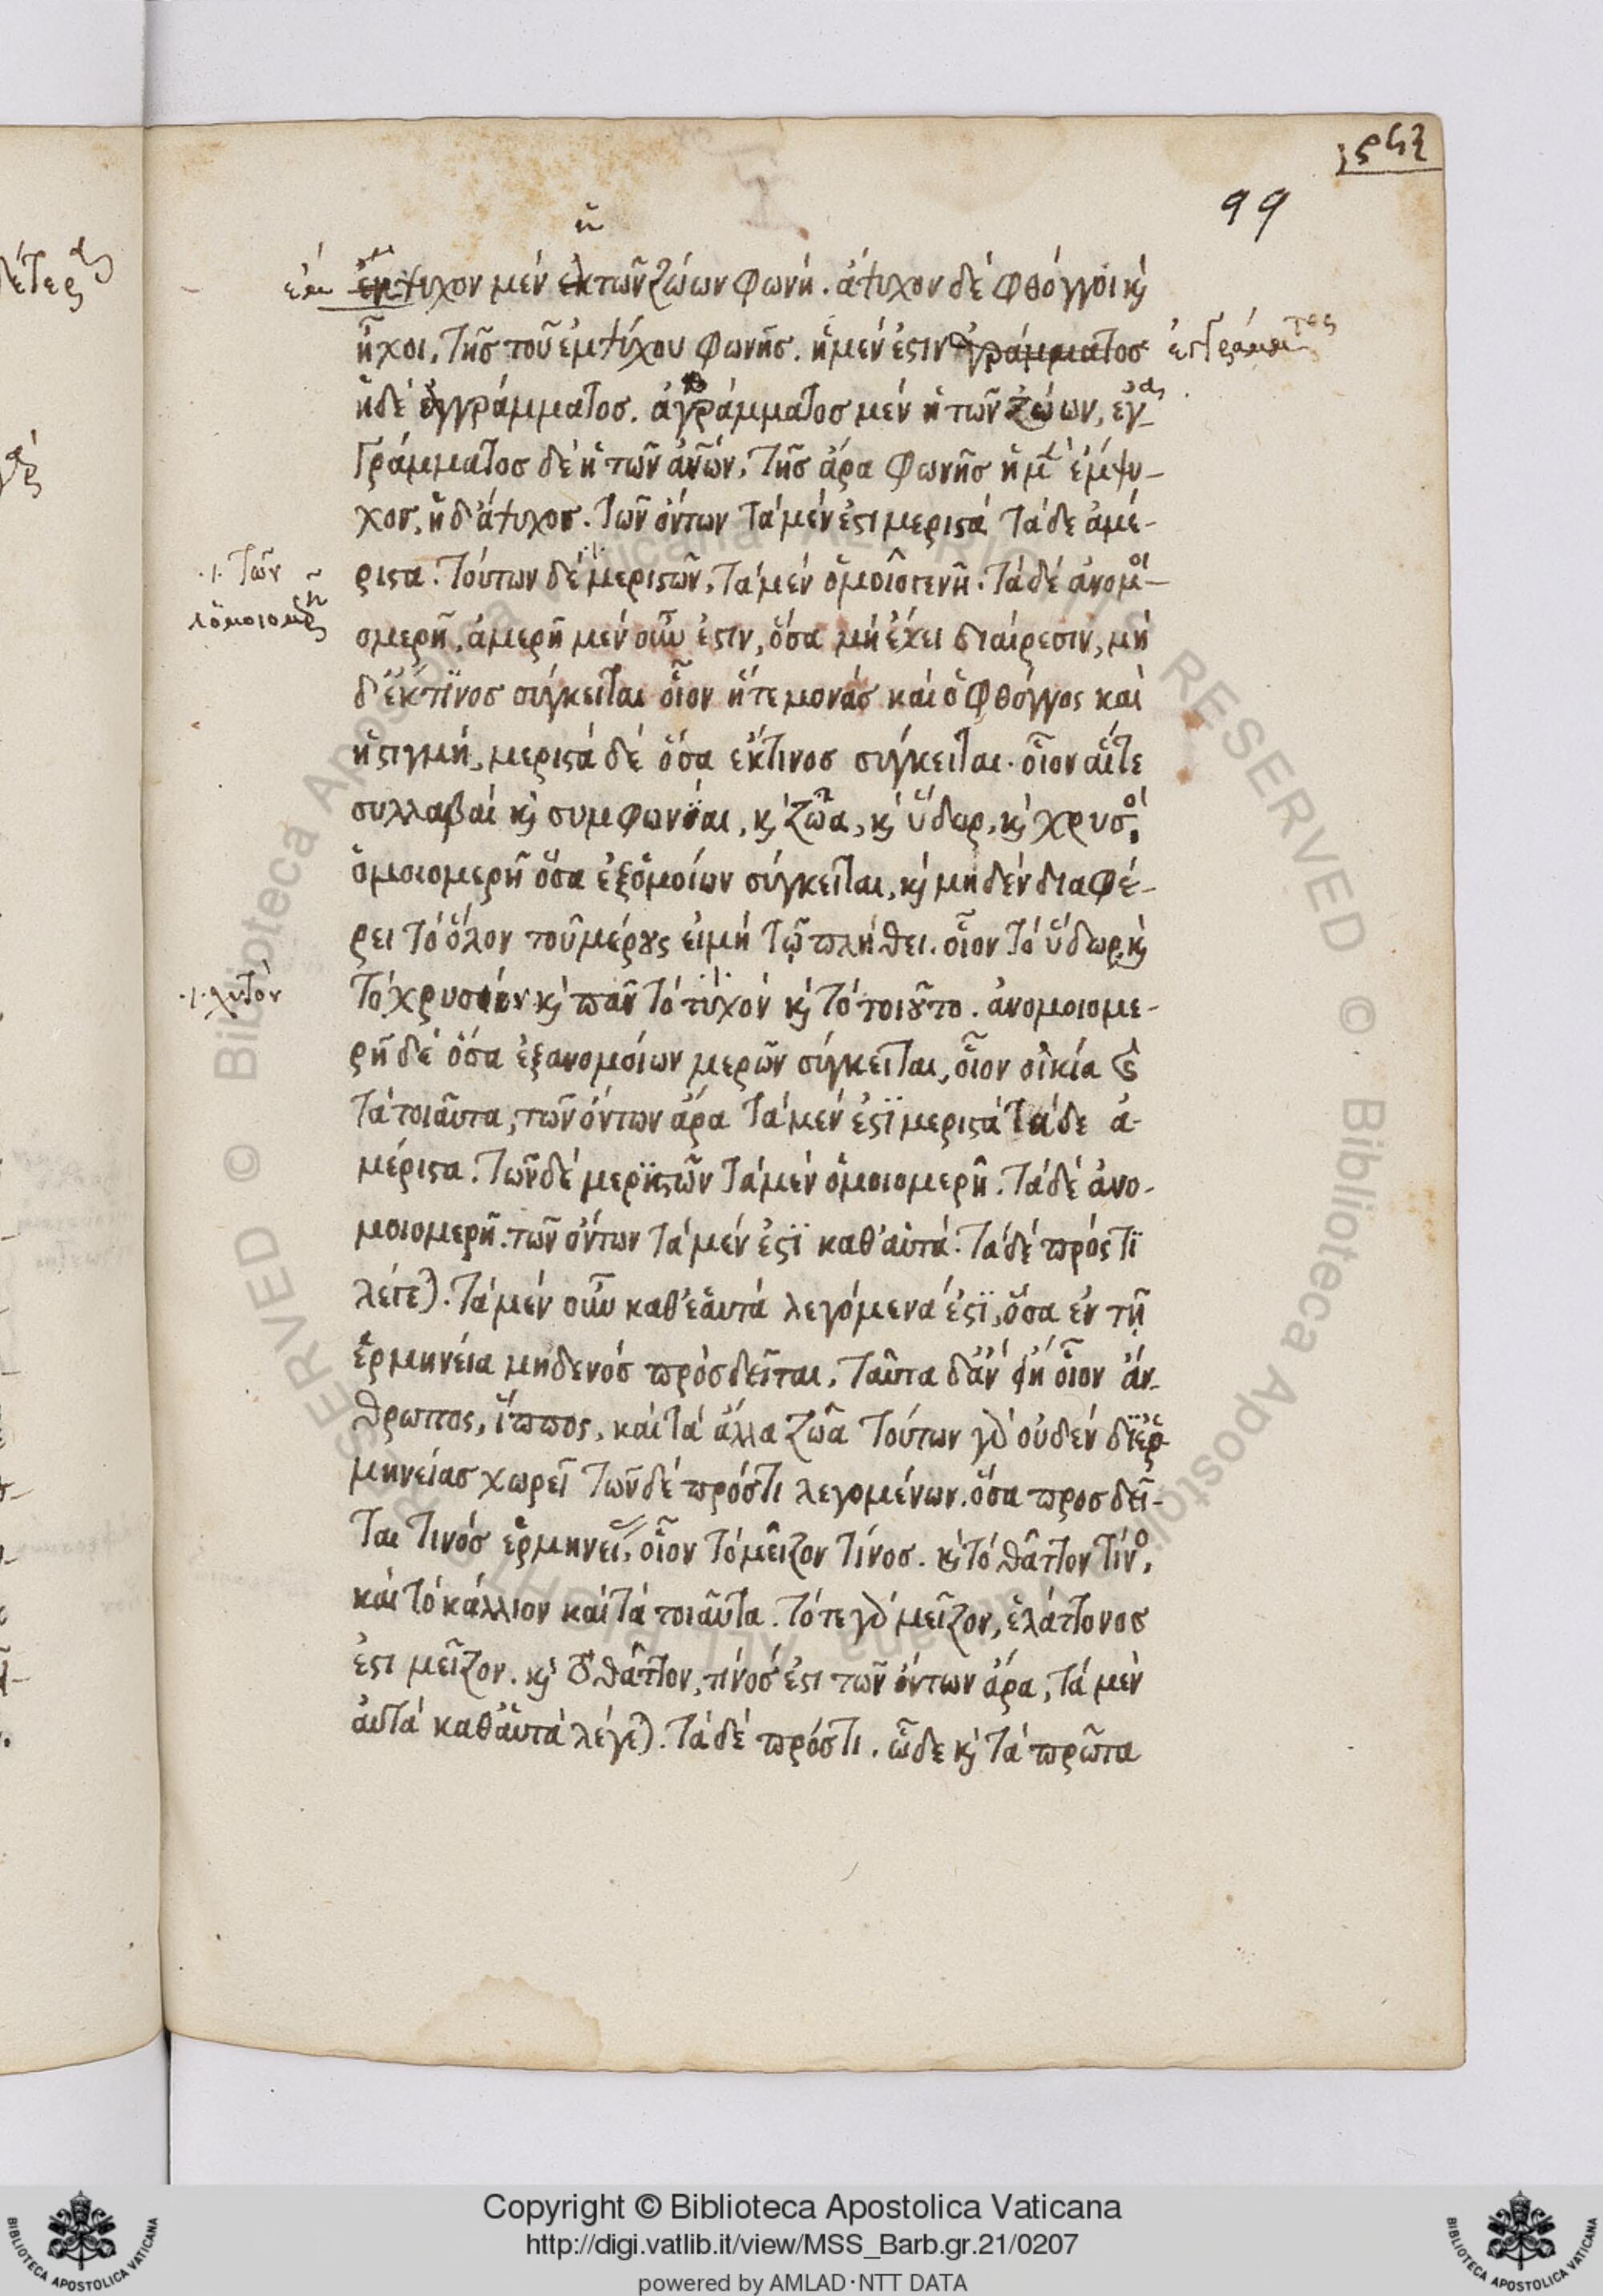 99
ἢ
ἐμ ἔμψυχον μέν ἐκ τῶν ζώων φωνή. ἄψυχον δέ φθόγγοι κ̀
ἦχοι, τῆσ τοῦ ἐμψύχου φωνῆσ. ἡ μέν ἐστιν ἀγράμματοσ
ἡ δέ ἐγγράμματοσ. ἀγράμματοσ μέν ἡ τῶν ζώων, ἐγ-
γράμματοσ δέ ἡ τῶν ἀνῶν, τῆσ ἄρα φωνῆσ ἡ μ̀ ἐμψυ-
χοσ, ἡ δ' ἄψυχοσ. τῶν ὄντων τά μέν ἐστι μεριστά τά δε ἀμέ-
ριστα. τούτων δέ μεριστῶν, τά μέν
.ι. τῶν
τά δέ ἀνομοι-
ομερῆ, ἀμερῆ μέν οὖν ἐστιν, ὅσα μή ἔχει διαίρεσιν, μή
δ' ἔκ τινοσ σύγκειται οἷον ἥτε μονάσ καί ὁ φθόγγος καί
ἡ στιγμή, μεριστά δέ ὅσα ἔκτινοσ σύγκειται. οἷον αἵτε
συλλαβαί κ̀ συμφωνίαι, κ̀ ζῶα, κ̀ ὕδωρ, κ̀ χρυσο.
ὁμοιομερῆ ὅσα ἐξ ὁμοίων σύγκειται, κ̀ μηδέν διαφέ-
ρει τό ὅλον τοῦ μέρους εἰμή τῷ πλήθει. οἷον τό ὕδωρ, κ̀
.ι. χυτόν
τό χρυσίον κ̀ πᾶν τό τύχόν κ̀ τό τοιοῦτο. ἀνομοιομε-
ρῆ δέ ὅσα ἐξανομοίων μερῶν σύγκειται, οἷον οἰκία κ̀
τά τοιαῦτα, τῶν ὄντων ἄρα τά μέν ἐστϊ μεριστά τά δε ἀ-
μέριστα. τῶν δέ μερϊστῶν τά μέν ὁμοιομερῆ. τά δέ ἀνο-
μοιομερῆ. τῶν ὄντων τά μέν ἐστϊ καθ' αὑτά. τά δέ πρός τϊ
λέγε). τά μέν οὖν καθ' ἑαυτά λεγόμενά ἐστϊ, ὅσα ἐν τῇ
ἑρμηνεία μηδενόσ πρόσδεῖται, ταῦτα δ' ἄν φή οἷον ἄν-
θρωπος, ἵππος, καί τά ἄλλα ζῶα τούτων γδ οὐδέν δϊ' ἑρ-
μηνείασ χωρεῖ τῶν δέ πρόστι λεγομένων. ὅσα προσδεῖ-
ται τινόσ ἑρμηνεί, οἷον τό μεῖζον τίνοσ. κ̀ τό θᾶττον τίνο,
καί τό κάλλιον καί τά τοιαῦτα. τό τε γδ μεῖζον, ἐλάττονοσ
ἐστι μεῖζον. κ̀ τό θᾶττον, τινόσ ἐστι τῶν ὄντων ἄρα, τά μέν
αὐτά καθ' αὑτά λέγε). τά δέ πρόστι. ὧδε κ̀ τά πρῶτα
Copyright © Biblioteca Apostolica Vaticana
http://digi.vatlib.it/view/MSS_Barb.gr.21/0207
powered by AMLAD·NTT DATA